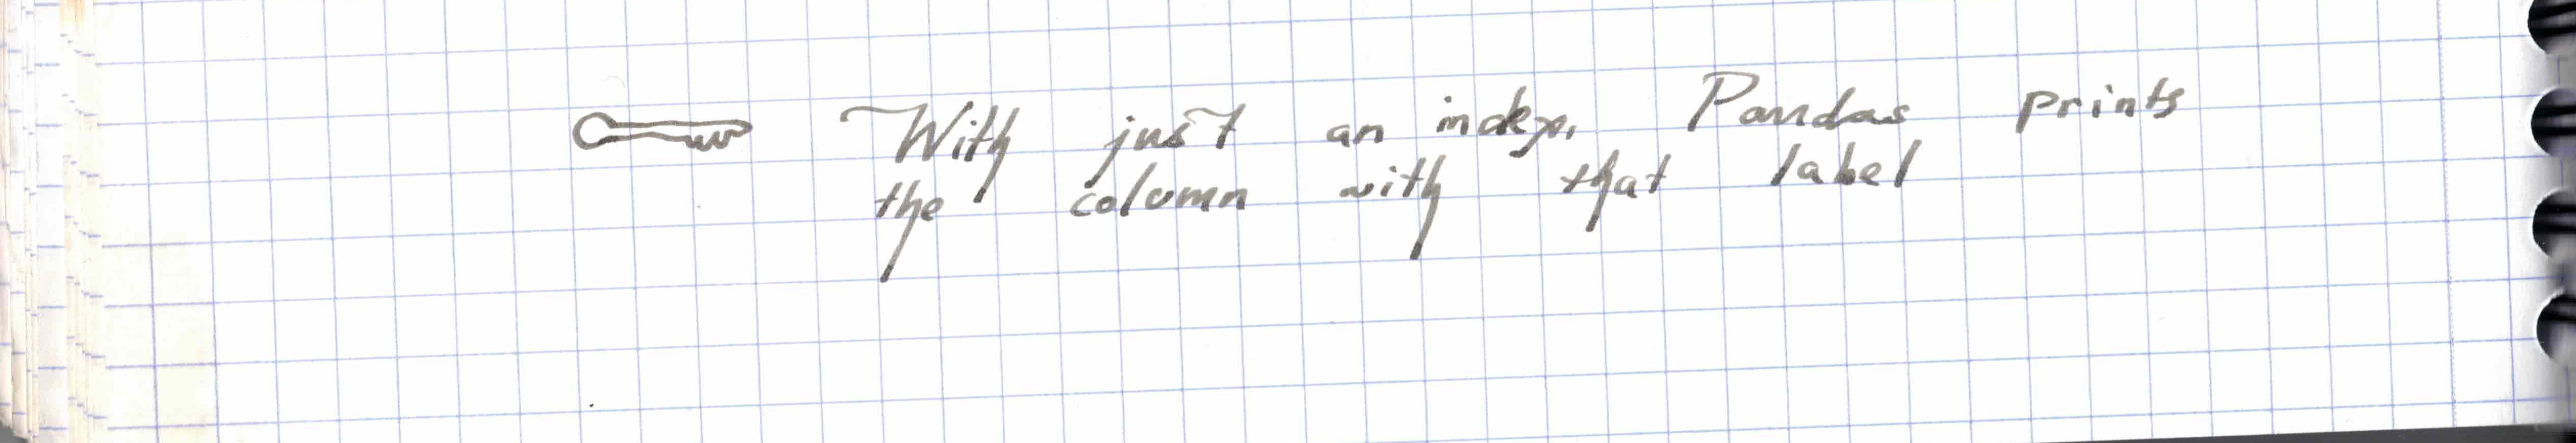 With just an index, Pandas prints
the column with that label